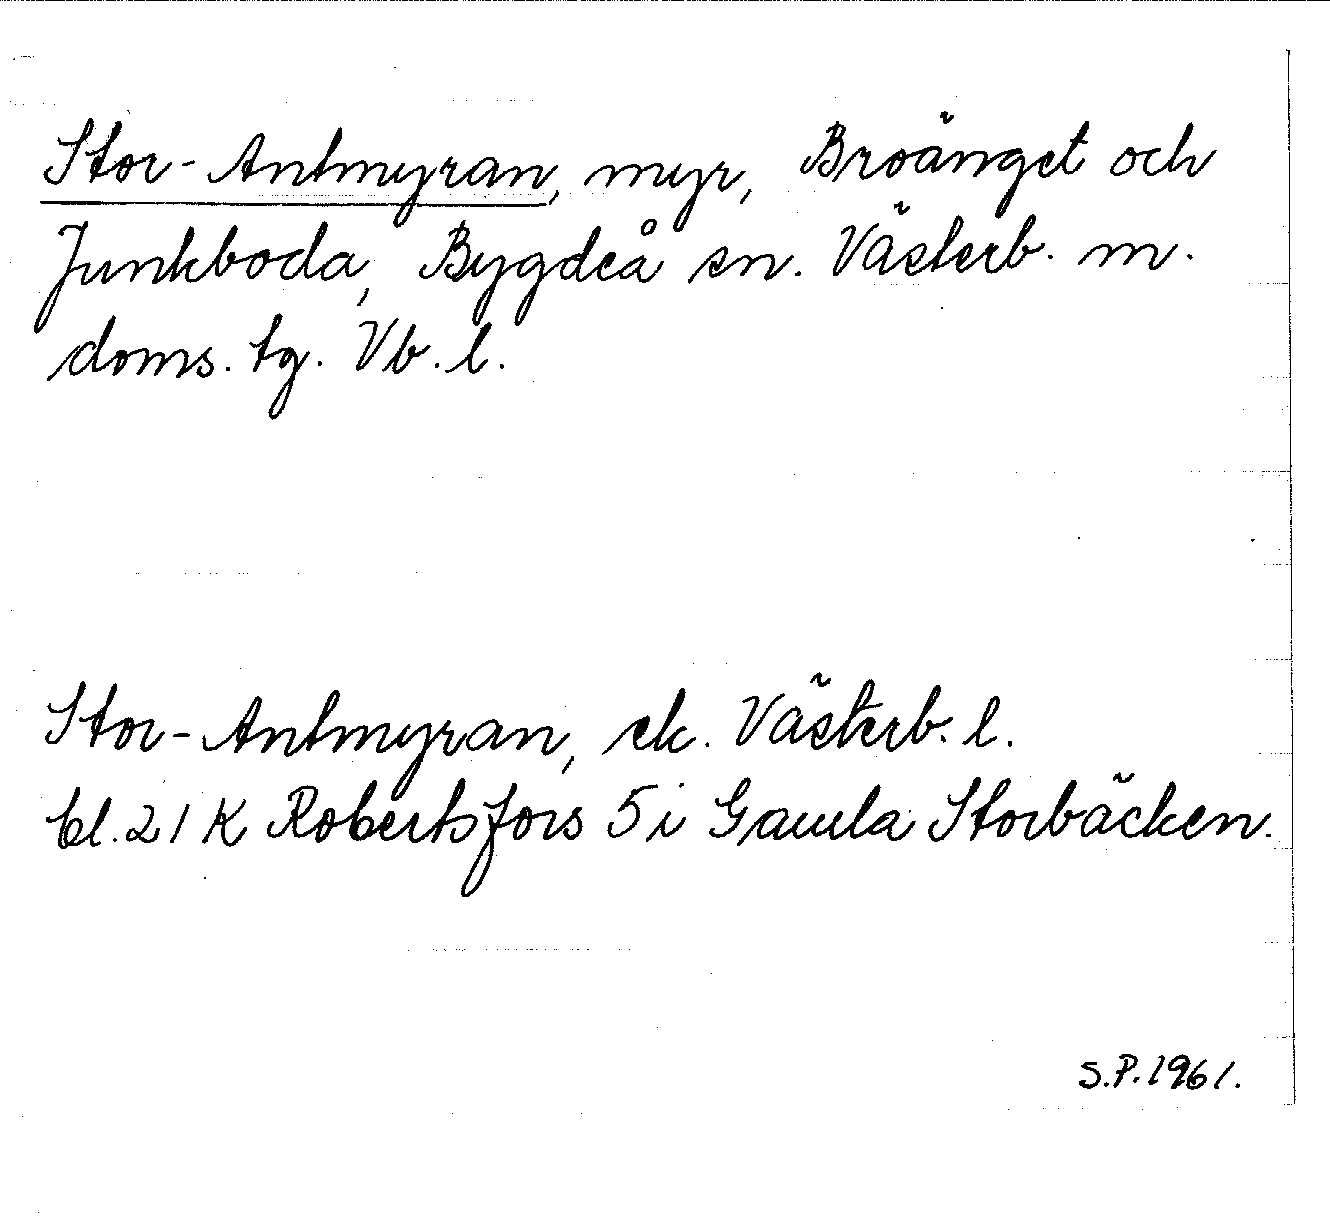 Stor-Antmyran, myr, Broänget och
Junkboda, Bygdeå sn. Västerb. m.
doms. tg. Vb. l.
Stor-Antmyran, ek. Västerb. l.
bl. 21 K Robertsfors 5 i Gamla Storbäcken.
S.P. 1961.